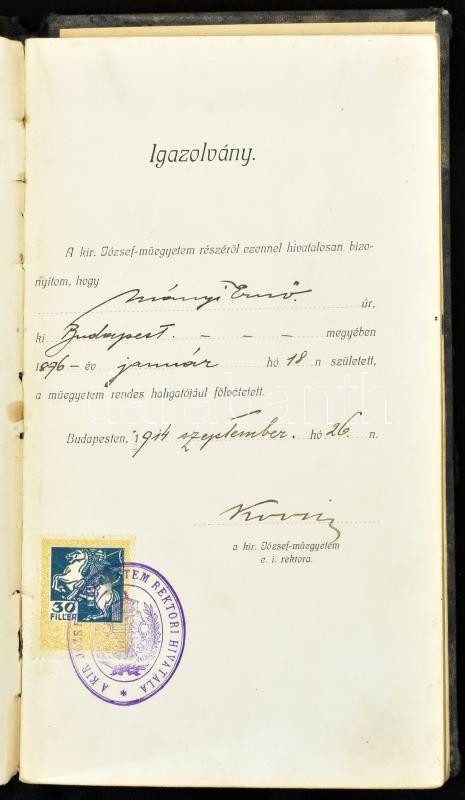 Igazolvány.
A kir. József-műegyetem részéről ezennel hivatalosan bizo-
nyítom, hogy
Ernő. úr,
ki Budapest. – – – megyében
1896 – év január hó 18 n született,
a műegyetem rendes hallgatójául fölvétetett.
Budapesten, 1914 szeptember. hó 26. n.
a kir. József-műegyetem
e. i. rektora.
30
FILLÉR
A KIR. JÓZSEF MŰEGYETEM REKTORI HIVATALA *
darabanth